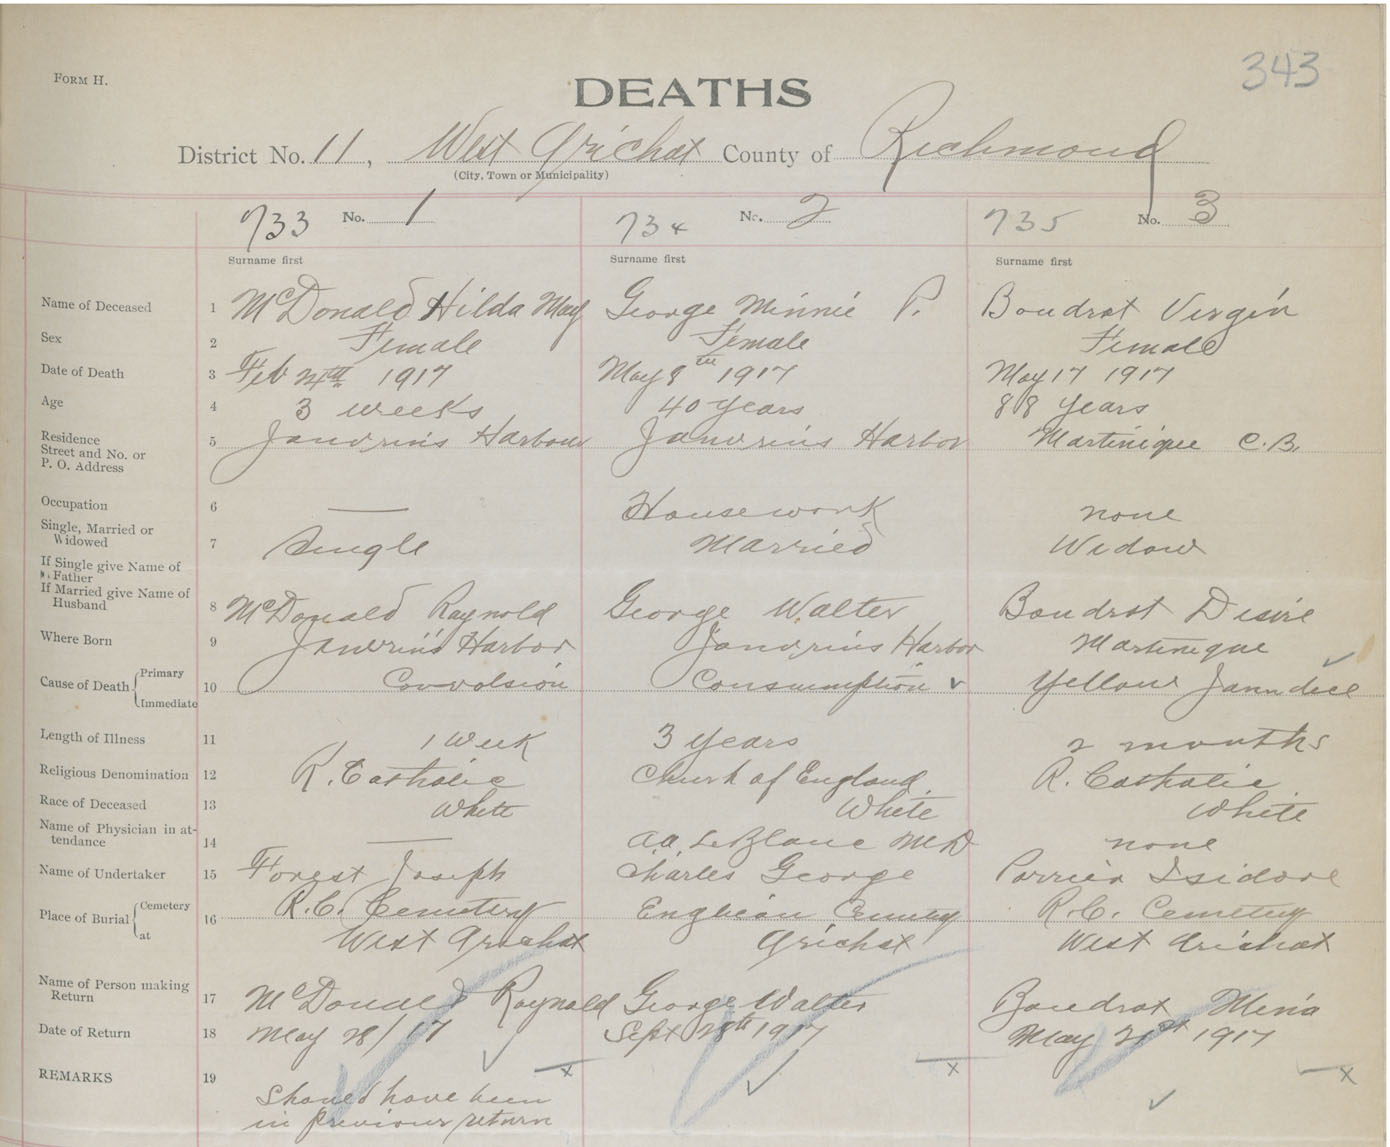 343
FORM H.
DEATHS
District No. 11, West Arichat County of Richmond
(City, Town or Municipality)
733 No. 1 734 No. 2 735 No. 3
Surname first Surname first Surname first
Name of Deceased 1 McDonald Hilda May George Minnie P. Boudrot Virgin
Sex 2 Female Female Female
Date of Death 3 Feb 1917 May 8th 1917 May 17 1917
Age 4 3 weeks 40 years 88 years
Residence
Street and No. or
P. O. Address
5 Janvrins Harbour Janvrins Harbor Martinique C.B.
Occupation 6 — Housework none
Single, Married or
Widowed
7 Single Married Widow
If Single give Name of
Father
If Married give Name of
Husband
8 McDonald Raynold George Walter Boudrot Desire
Where Born 9 Janvrins Harbor Janvrins Harbor Martinique
Cause of Death { Primary
Immediate
10 Convolsion Consumption ✓ Yellow Janndice ✓
Length of Illness 11 1 Week 3 years 2 months
Religious Denomination 12 R. Catholic Church of England R. Catholic
Race of Deceased 13 White White White
Name of Physician in at-
tendance
14 — A.A. LeBlanc M.D none
Name of Undertaker 15 Forest Joseph Charles George Porrier Isidore
Place of Burial { Cemetery
at
16 R.C. Cemetery R.C. Cemetery
West Arichat Arichat West Arichat
Name of Person making
Return
17 McDonald Raynold George Walter Boudrot
Date of Return 18 May 28/17 Sept 28th 1917 May 21st 1917
REMARKS 19 x x x
Should have been
in previous return